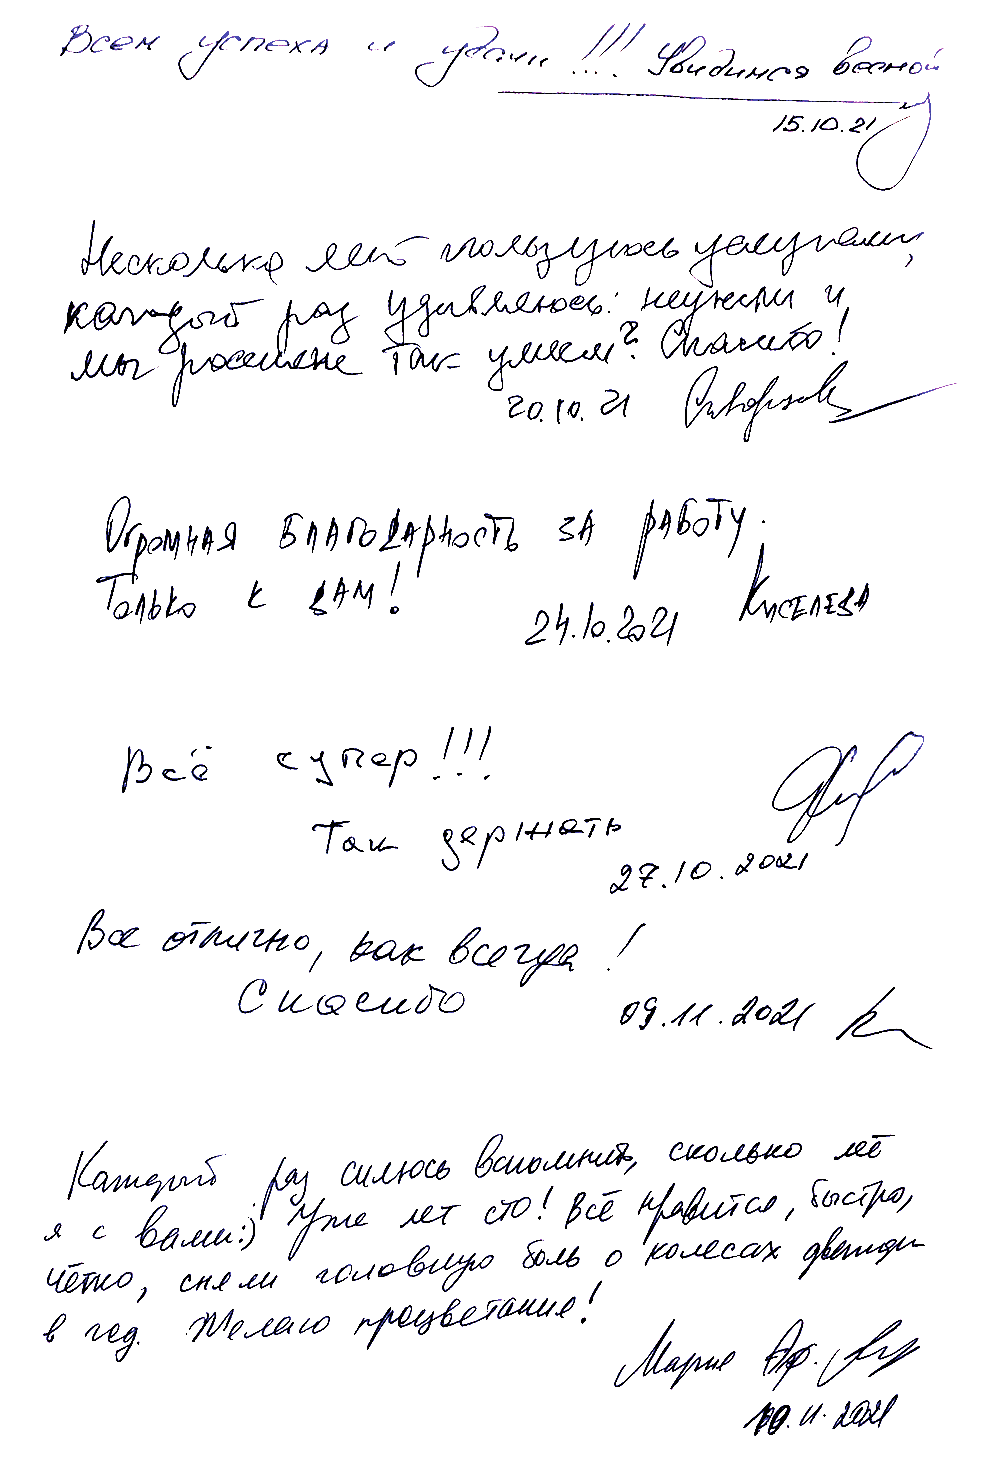 Всем успеха и удачи !!! Увидимся весной
15.10.21
Несколько лет пользуюсь услугами,
каждый раз удивляюсь: неужели и
мы россияне так умеем? Спасибо!
20.10.21
Огромная благодарность за работу.
Только к вам!
24.10.2021 Киселева
Всё супер!!!
Так держать
27.10.2021
Все отлично, как всегда!
Спасибо 09.11.2021
Каждый раз силюсь вспомнить, сколько лет
я с вами:) Уже лет сто! Всё нравится, быстро,
чётко, сняли головную боль о колесах дважды
в год. Желаю процветание!
Мария
10.11.2021